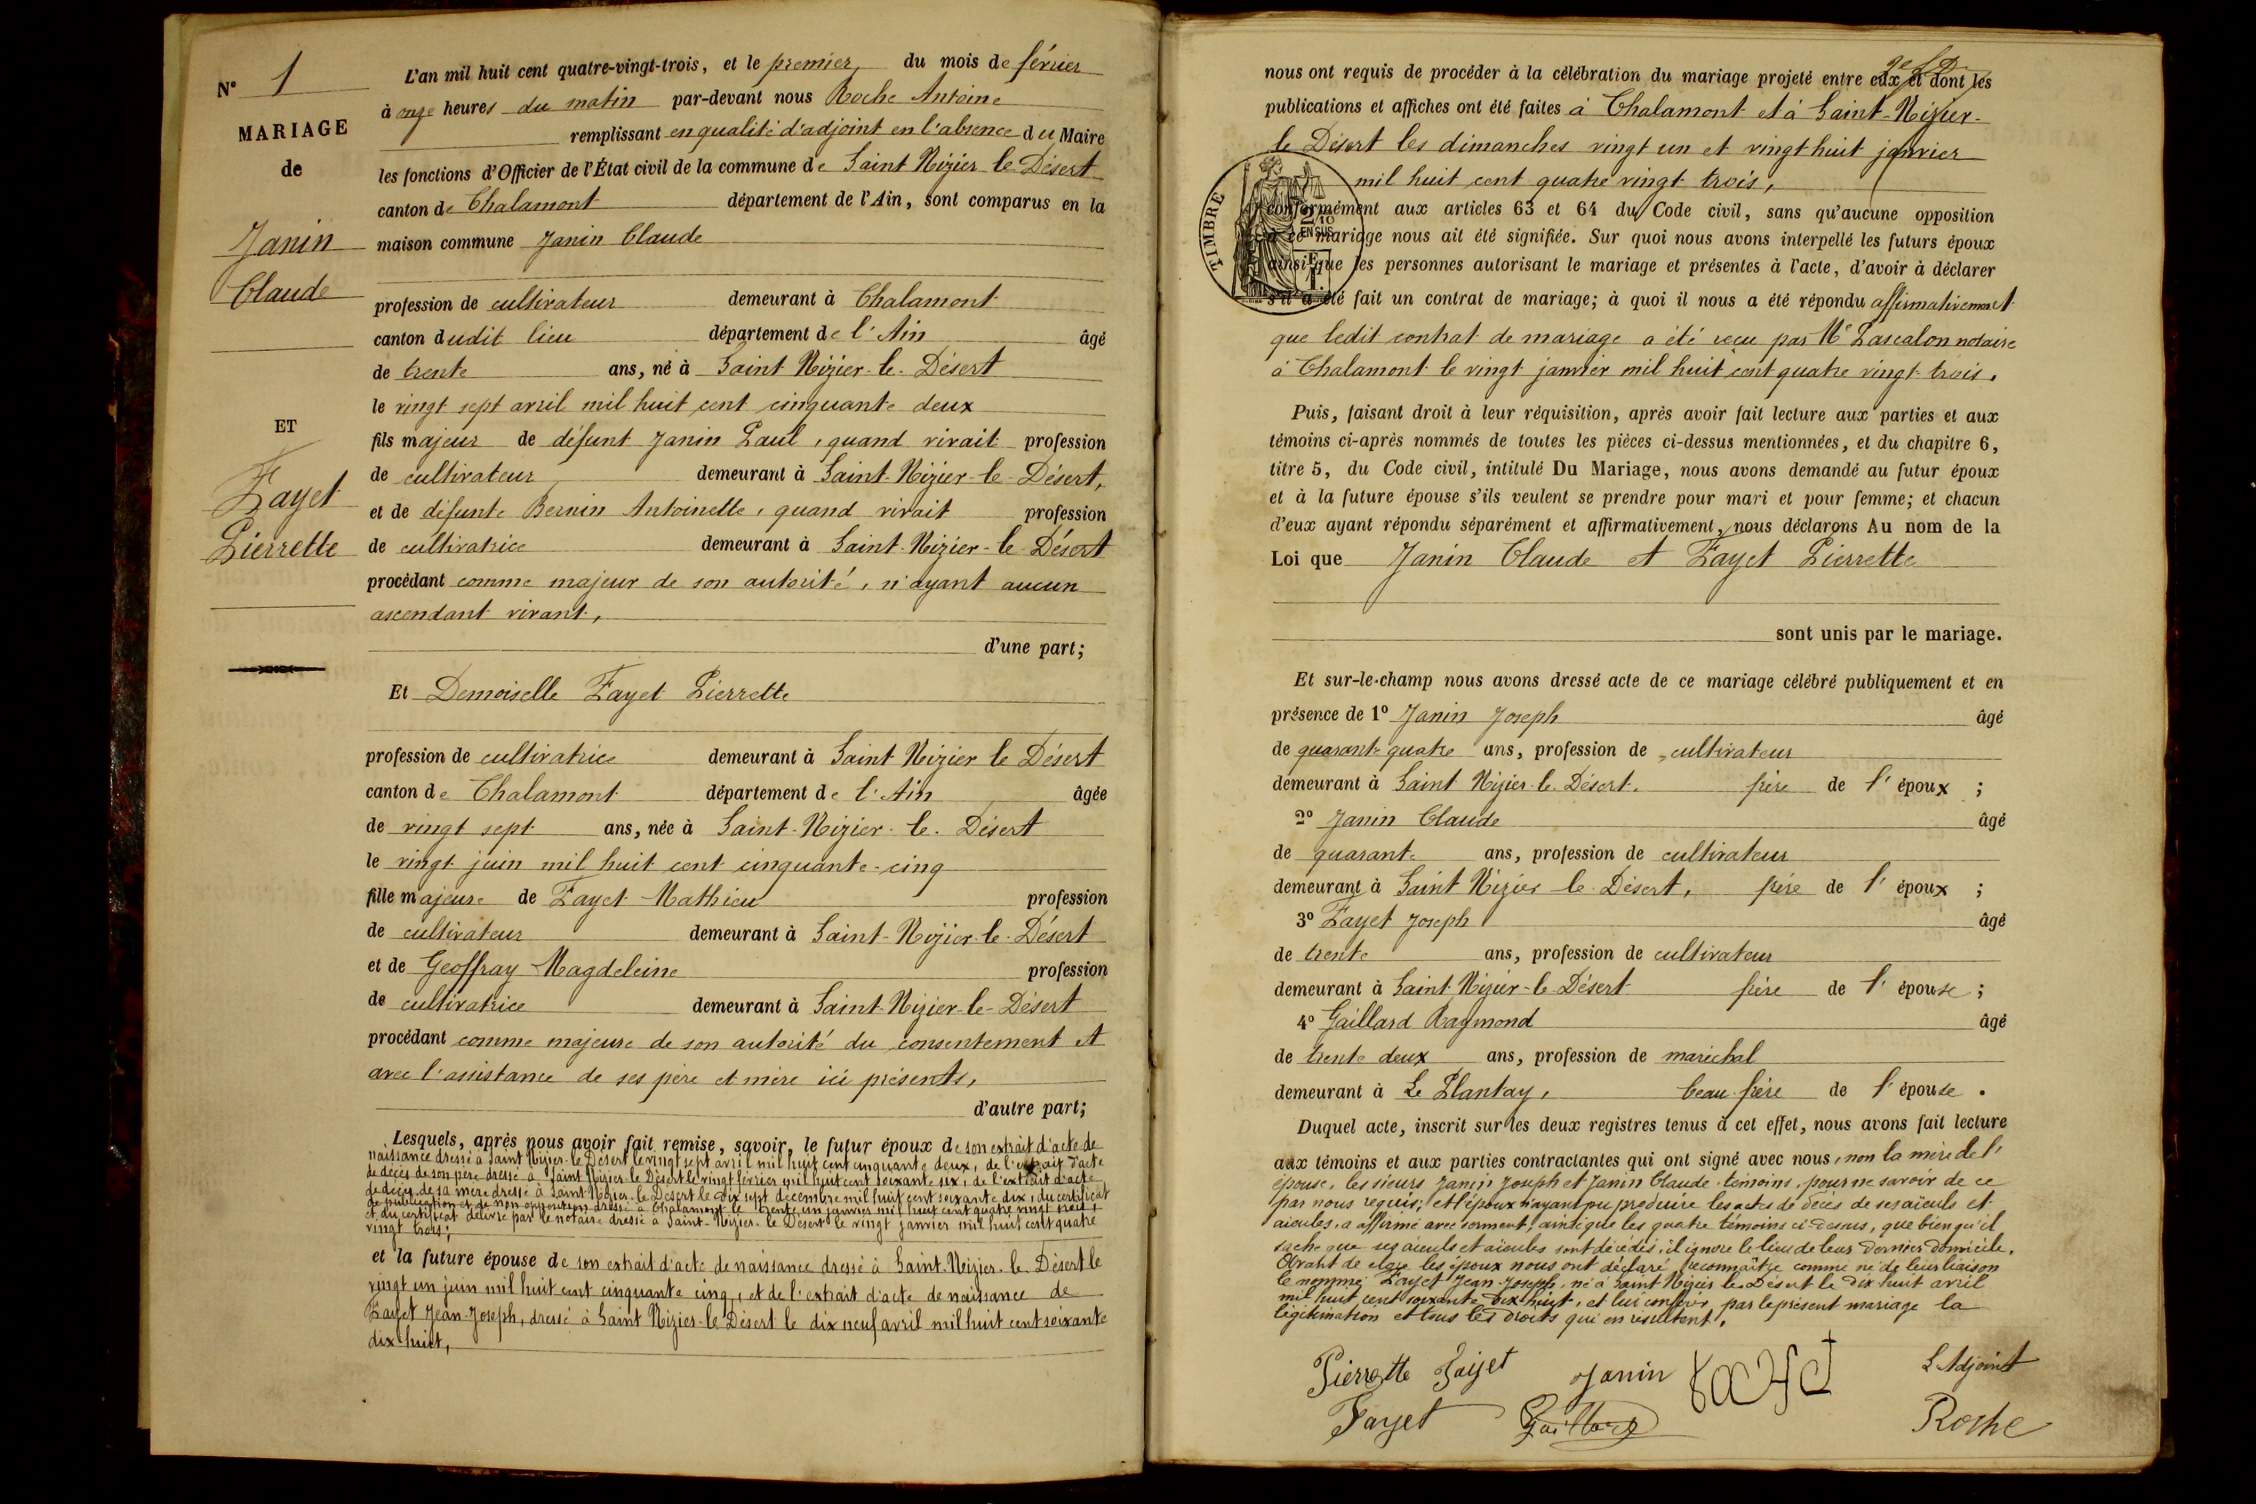 N° 1
MARIAGE
de
Janin
Claude
ET
Fayet
Pierrette
L'an mil huit cent quatre-vingt-trois, et le premier du mois de février
à onze heures du matin par-devant nous Roche Antoine
remplissant en qualité d'adjoint en l'absence du Maire
les fonctions d'Officier de l'État civil de la commune de Saint Nizier le Désert
canton de Chalamont département de l'Ain, sont comparus en la
maison commune Janin Claude
profession de cultivateur demeurant à Chalamont
canton dudit lieu département de l'Ain âgé
de trente ans, né à Saint Nizier-le-Désert
le vingt sept avril mil huit cent cinquante deux
fils majeur de défunt Janin Paul, quand vivait profession
de cultivateur demeurant à Saint-Nizier-le-Désert,
et de défunte Bernin Antoinette, quand vivait profession
de cultivatrice demeurant à Saint-Nizier-le Désert
procédant comme majeur de son autorité, n'ayant aucun
ascendant vivant,
d'une part;
Et Demoiselle Fayet Pierrette
profession de cultivatrice demeurant à Saint Nizier le Désert
canton de Chalamont département de l'Ain âgée
de vingt sept ans, née à Saint-Nizier-le-Désert
le vingt juin mil huit cent cinquante-cinq
fille majeure de Fayet Mathieu profession
de cultivateur demeurant à Saint-Nizier-le-Désert
et de Geoffray Magdeleine profession
de cultivatrice demeurant à Saint-Nizier-le-Désert
procédant comme majeure de son autorité du consentement et
avec l'assistance de ses père et mère ici présents,
d'autre part;
Lesquels, après nous avoir fait remise, savoir, le futur époux de son extrait d'acte de
naissance dressé à Saint Nizier-le-Désert le vingt sept avril mil huit cent cinquante deux, de l'extrait d'acte
de décès de son père dressé à Saint Nizier-le Désert le vingt février mil huit cent soixante six, de l'extrait d'acte
de décès de sa mère dressé à Saint Nizier-le Désert le dix sept décembre mil huit cent soixante dix, du certificat
de publication et de non opposition dressé à Chalamont le trente un janvier mil huit cent quatre vingt trois,
et du certificat délivré par le notaire dressé à Saint-Nizier-le Désert le vingt janvier mil huit cent quatre
vingt trois;
et la future épouse de son extrait d'acte de naissance dressé à Saint-Nizier-le-Désert le
vingt un juin mil huit cent cinquante cinq, et de l'extrait d'acte de naissance de
Fayet Jean-Joseph, dressé à Saint Nizier-le Désert le dix neuf avril mil huit cent soixante
dix-huit,
nous ont requis de procéder à la célébration du mariage projeté entre eux et dont les
publications et affiches ont été faites à Chalamont et à Saint-Nizier-
le Désert les dimanches vingt un et vingt huit janvier
mil huit cent quatre vingt trois,
conformément aux articles 63 et 64 du Code civil, sans qu'aucune opposition
à ce mariage nous ait été signifiée. Sur quoi nous avons interpellé les futurs époux
ainsi que les personnes autorisant le mariage et présentes à l'acte, d'avoir à déclarer
s'il a été fait un contrat de mariage; à quoi il nous a été répondu affirmativement
que ledit contrat de mariage a été reçu par Me Lascalon notaire
à Chalamont le vingt janvier mil huit cent quatre vingt trois.
TIMBRE
2/10
EN SUS
Puis, faisant droit à leur réquisition, après avoir fait lecture aux parties et aux
témoins ci-après nommés de toutes les pièces ci-dessus mentionnées, et du chapitre 6,
titre 5, du Code civil, intitulé Du Mariage, nous avons demandé au futur époux
et à la future épouse s'ils veulent se prendre pour mari et pour femme; et chacun
d'eux ayant répondu séparément et affirmativement, nous déclarons Au nom de la
Loi que Janin Claude et Fayet Pierrette
sont unis par le mariage.
Et sur-le-champ nous avons dressé acte de ce mariage célébré publiquement et en
présence de 1° Janin Joseph âgé
de quarante quatre ans, profession de cultivateur
demeurant à Saint Nizier-le-Désert. frère de l'époux ;
2° Janin Claude âgé
de quarante ans, profession de cultivateur
demeurant à Saint Nizier le Désert, frère de l'époux ;
3° Fayet Joseph âgé
de trente ans, profession de cultivateur
demeurant à Saint-Nizier-le-Désert frère de l'épouse ;
4° Gaillard Raymond âgé
de trente deux ans, profession de maréchal
demeurant à Le Plantay, beau-frère de l'épouse.
Duquel acte, inscrit sur les deux registres tenus à cet effet, nous avons fait lecture
aux témoins et aux parties contractantes qui ont signé avec nous, non la mère de l'
épouse, les sieurs Janin Joseph et Janin Claude témoins, pour ne savoir de ce
par nous requis; et l'époux n'ayant pu produire les actes de décès de ses aïeuls et
aïeules, a affirmé avec serment, ainsi que les quatre témoins ci-dessus, que bien qu'il
sache que ses aïeuls et aïeules sont décédés, il ignore le lieu de leur dernier domicile.
Avant de clore les époux nous ont déclaré reconnaître comme né de leur liaison
le nommé Fayet Jean-Joseph, né à Saint Nizier le Désert le dix huit avril
mil huit cent soixante dix huit, et lui conférer par le présent mariage la
légitimation et tous les droits qui en résultent.
Pierrette Faijet Janin L'Adjoint
Fayet Gaillard Roche